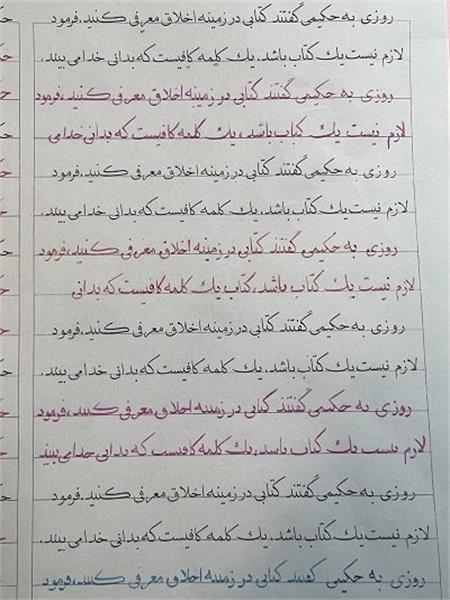 روزی به حکیمی گفتند کتابی در زمینه اخلاق معرفی کنید، فرمود
لازم نیست یک کتاب باشد، یک کلمه کافیست که بدانی خدا می بیند.
روزی به حکیمی گفتند کتابی در زمینه اخلاق معرفی کنید، فرمود
لازم نیست یک کتاب باشد، یک کلمه کافیست که بدانی خدا می
روزی به حکیمی گفتند کتابی در زمینه اخلاق معرفی کنید، فرمود
لازم نیست یک کتاب باشد، یک کلمه کافیست که بدانی خدا می بیند.
روزی به حکیمی گفتند کتابی در زمینه اخلاق معرفی کنید، فرمود
لازم نیست یک کتاب باشد، کتاب یک کلمه کافیست که بدانی
روزی به حکیمی گفتند کتابی در زمینه اخلاق معرفی کنید، فرمود
لازم نیست یک کتاب باشد، یک کلمه کافیست که بدانی خدا می بیند.
روزی به حکیمی گفتند کتابی در زمینه اخلاق معرفی کنید، فرمود
لازم نیست یک کتاب باشد، یک کلمه کافیست که بدانی خدا می بیند
روزی به حکیمی گفتند کتابی در زمینه اخلاق معرفی کنید، فرمود
لازم نیست یک کتاب باشد، یک کلمه کافیست که بدانی خدا می بیند.
روزی به حکیمی گفتند کتابی در زمینه اخلاق معرفی کنید، فرمود